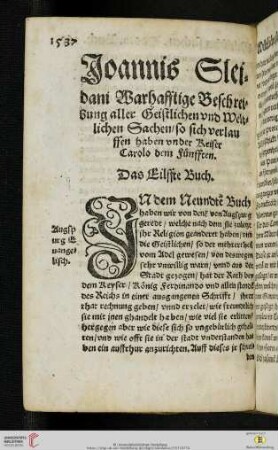 1537
Joannis Slei-
dani Warhafftige Beschrei-
bung aller Geistlichen vnd Welt-
lichen Sachen/ so sich verlau
ffen haben vnder Keiser
Carolo dem Fünfften.
Das Eilffte Buch.
IN dem Neundtē Buch
haben wir von denē von Augspurg
geredt/ welche nach dem sie
jhr Religion geändert haben/
die Geistlichen/ so der mehrertheil
vom Adel gewesen/ von deswegen
sehr vnwillig warn/ vnnd aus der
Statt gezogen/ hat der Rath
dem Keyser/ König Ferdinando vnd allen stenden
des Reichs in einer ausgangenen Schrifft/ jhrer
that rechnung geben/ vnnd erzelet/ wie freundtlich
sie mit jnen ghandelt haben/ wie viel sie erlitten/
hergegen aber wie diese sich so vngebürlich gehalten
vnd wie offt sie in der stadt vnderstanden ha
ben ein auffrhur anzurichten. Auff dieses
Augsp
urg E
uange-
lisch.